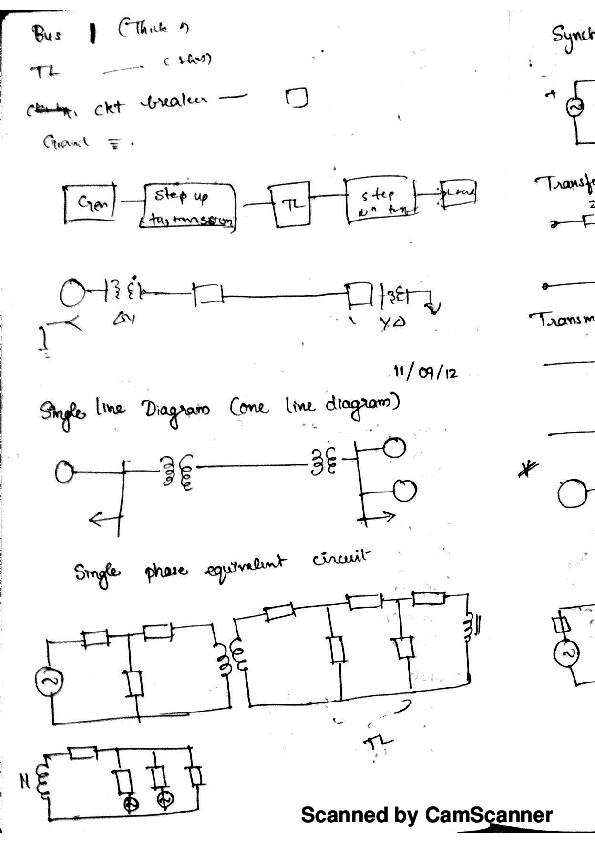 Bus | (Thick
TL —
ckt breaker —
Ground
Gen
Step up
TL
step
ΔY
YΔ
11/09/12
Single line Diagram (one line diagram)
Single phase equivalent circuit
TL
Synch
Transf
Transm
Scanned by CamScanner